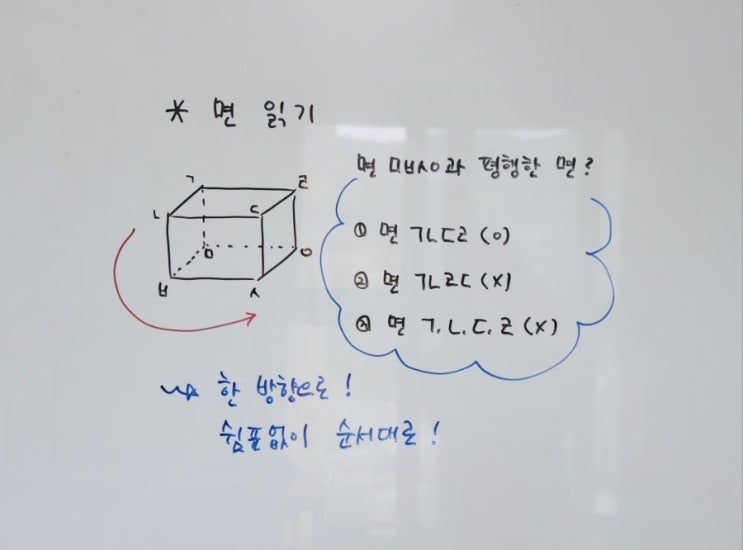 * 면 읽기
면 ㅁㅂㅅㅇ과 평행한 면?
ㄱ
ㄹ
ㄴ
ㄷ
ㅁ
ㅇ
ㅂ
ㅅ
① 면 ㄱㄴㄷㄹ (○)
② 면 ㄱㄴㄹㄷ (X)
③ 면 ㄱ.ㄴ.ㄷ.ㄹ (X)
↝ 한 방향으로!
쉼표없이 순서대로!